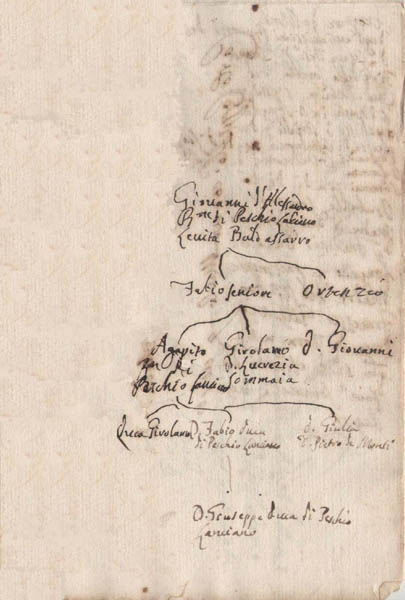 Giovanni d'Alessandro
B.ne di Peschio Lanciano
Levita Baldassarro
Fabio seniore. Orvenzio
Agapito Girolamo D. Giovanni
di D. Lucrezia
Peschio Lanciano Sommaia
Duca Girolamo D. Fabio duca D. Giulia
di Peschio Lanciano D. Pietro de Monti
D. Giuseppe Duca di Peschio
Lanciano